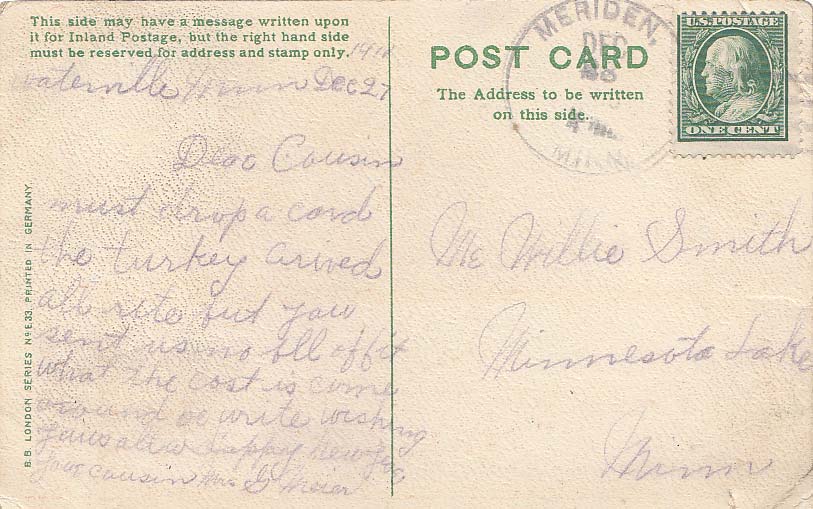 This side may have a message written upon
it for Inland Postage, but the right hand side
must be reserved for address and stamp only.
Waterville Minn Dec 27
Dear Cousin
must drop a card
the turkey arived
all rite but you
sent us no bll off it
what the cost is come
around or write wishing
you a happy New Year
your cousin Mrs G Meier
B.B. LONDON SERIES No E.33. PRINTED IN GERMANY.
POST CARD
The Address to be written
on this side.
MERIDEN,
DEC
MINN.
U.S. POSTAGE
ONE CENT
Mr Willie Smith
Minnesota Lake
Minn